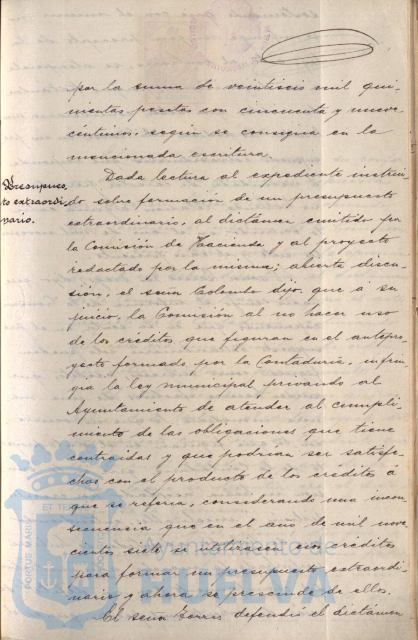 por la suma de veintiseis mil qui-
nientas pesetas con cincuenta y nueve
centimos, según se consigna en la
mencionada escritura.
Presupues-
to extraordi-
nario.
Dada lectura al expediente instrui-
do sobre formación de un presupuesto
extraordinario, al dictámen emitido por
la Comisión de Hacienda y al proyecto
redactado por la misma; abierta discu-
sión, el señor Colombo dijo, que á su
juicio, la Comisión al no hacer uso
de los créditos que figuran en el antepro-
yecto formado por la Contaduría, infrin-
gía la ley municipal privando al
Ayuntamiento de atender al cumpli-
miento de las obligaciones que tiene
contraidas y que podrían ser satisfe-
chas con el producto de los créditos á
que se referia, considerando una incon-
secuencia que en el año de mil nove-
cientos siete se utilizasen esos créditos
para formar un presupuesto extraordi-
nario y ahora se prescinde de ellos.
El señor Torres defendió el dictámen
PORTUS MARIS ET TERRAE
Ayuntamiento de
HUELVA